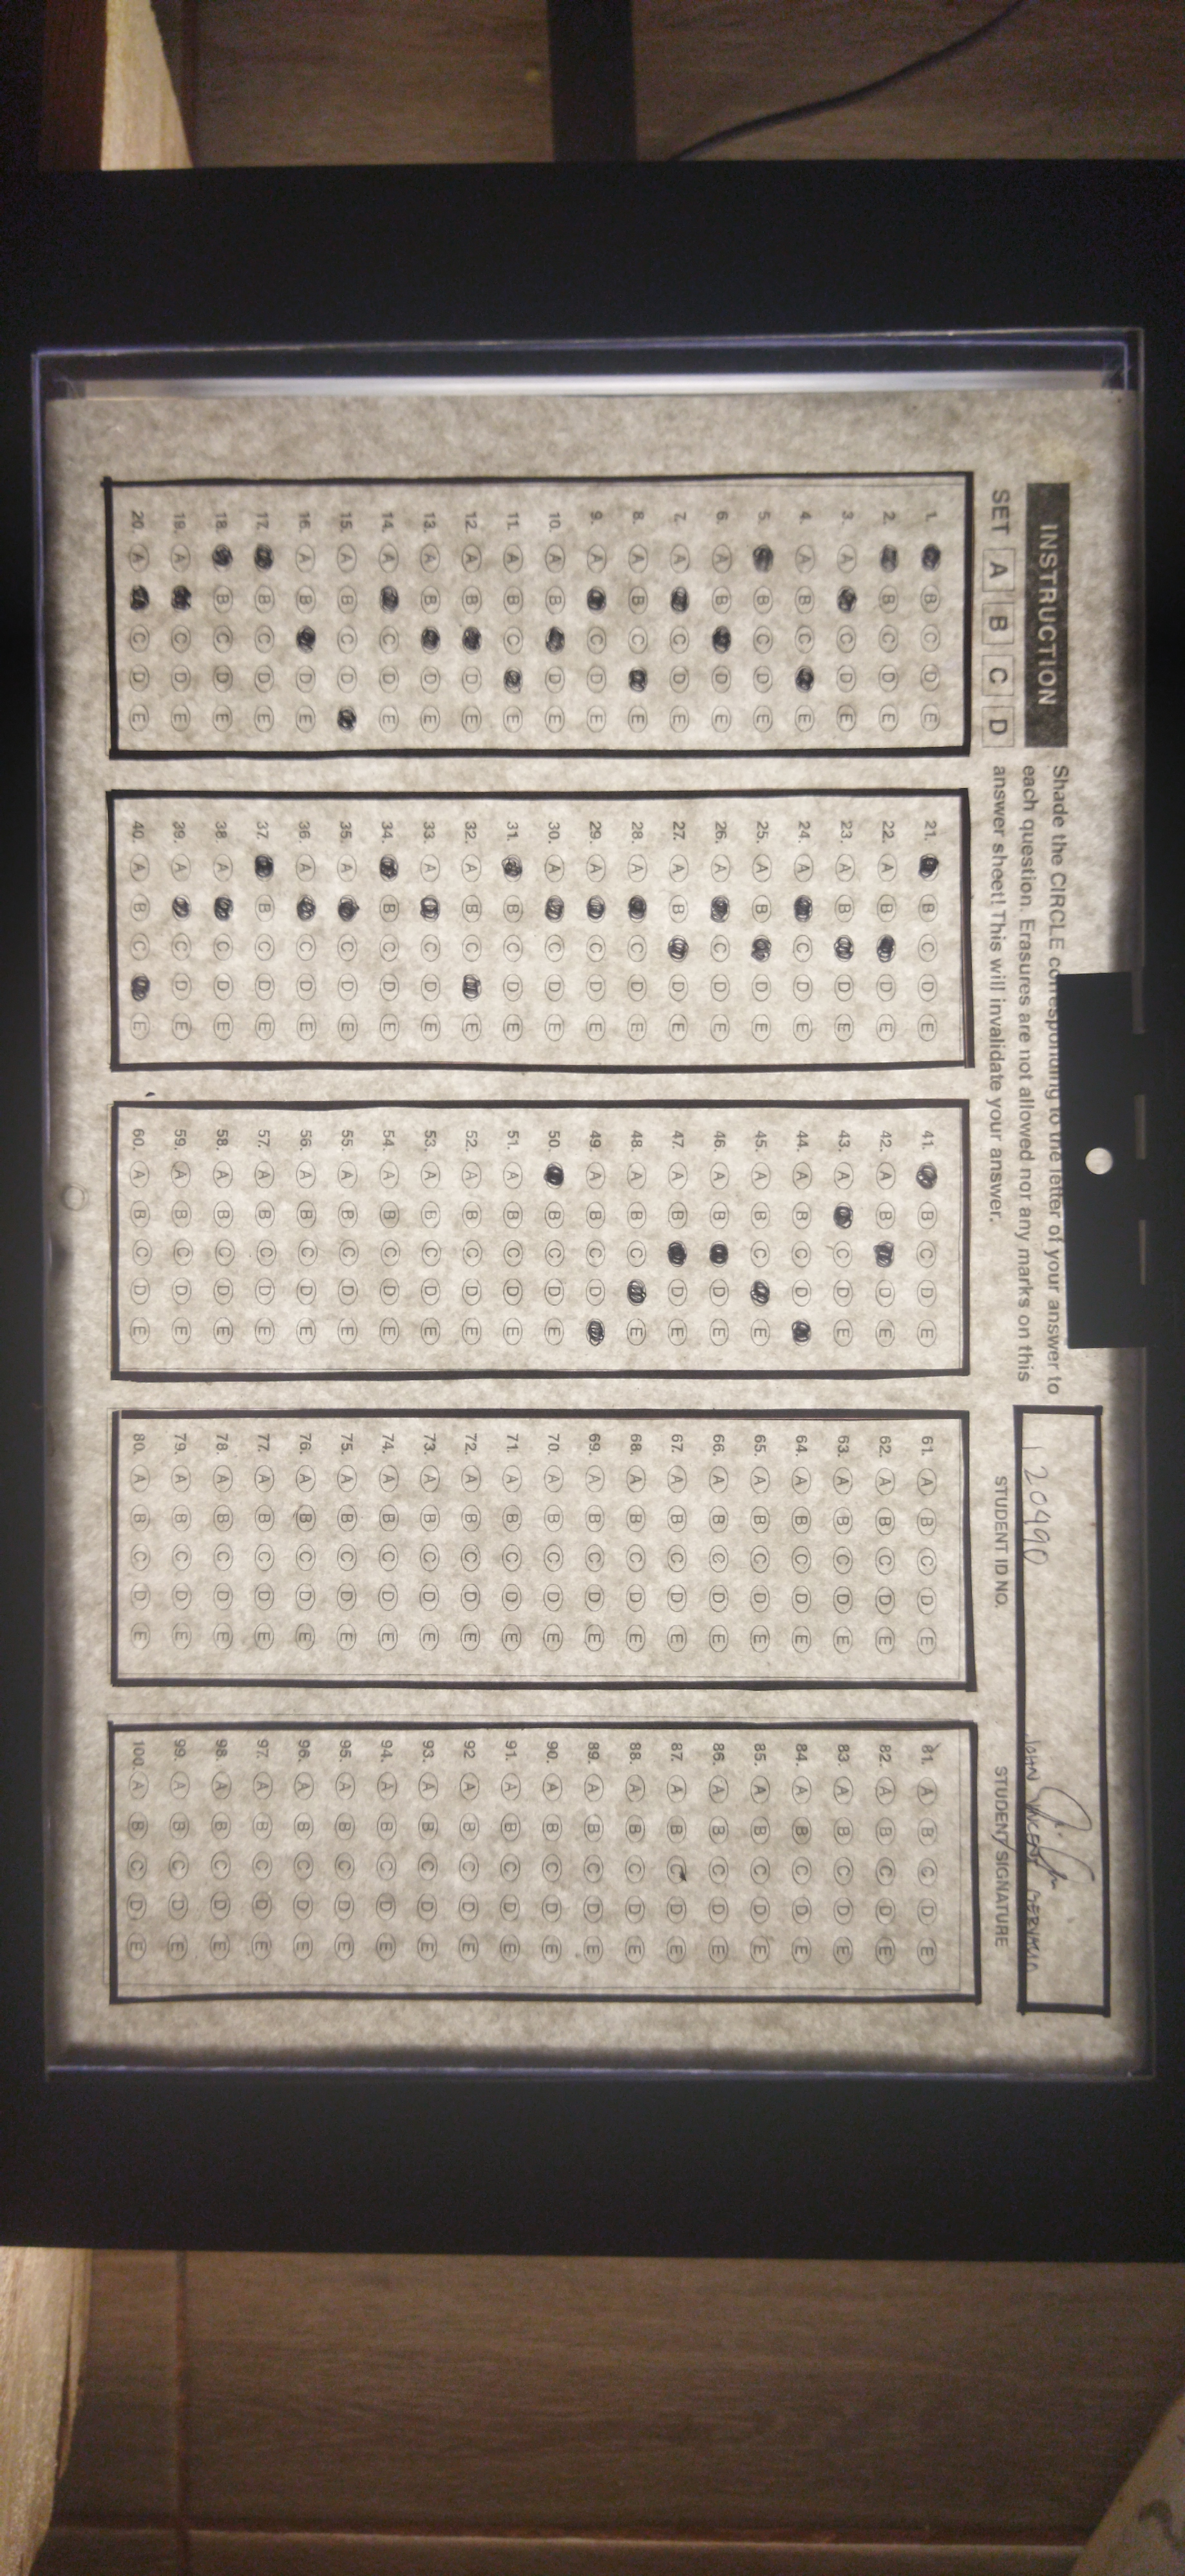 INSTRUCTION
Shade the CIRCLE corresponding to the letter of your answer to
each question. Erasures are not allowed nor any marks on this
answer sheet! This will invalidate your answer.
SET A B C D
120490
JOHN VINCENT
STUDENT ID NO.
STUDENT SIGNATURE
1. B C D E
2. B C D E
3. A C D E
4. A B C E
5. B C D E
6. A B D E
7. A C D E
8. A B C E
9. A C D E
10. A B D E
11. A B C E
12. A B D E
13. A B D E
14. A C D E
15. A B C D
16. A B D E
17. B C D E
18. B C D E
19. A C D E
20. A C D E
21. B C D E
22. A B D E
23. A B D E
24. A C D E
25. A B D E
26. A C D E
27. A B D E
28. A C D E
29. A C D E
30. A C D E
31. B C D E
32. A B C E
33. A C D E
34. B C D E
35. A C D E
36. A C D E
37. B C D E
38. A C D E
39. A C D E
40. A B C E
41. B C D E
42. A B D E
43. A C D E
44. A B C D
45. A B C E
46. A B D E
47. A B D E
48. A B C E
49. A B C D
50. B C D E
51. A B C D E
52. A B C D E
53. A B C D E
54. A B C D E
55. A B C D E
56. A B C D E
57. A B C D E
58. A B C D E
59. A B C D E
60. A B C D E
61. A B C D E
62. A B C D E
63. A B C D E
64. A B C D E
65. A B C D E
66. A B C D E
67. A B C D E
68. A B C D E
69. A B C D E
70. A B C D E
71. A B C D E
72. A B C D E
73. A B C D E
74. A B C D E
75. A B C D E
76. A B C D E
77. A B C D E
78. A B C D E
79. A B C D E
80. A B C D E
81. A B C D E
82. A B C D E
83. A B C D E
84. A B C D E
85. A B C D E
86. A B C D E
87. A B C D E
88. A B C D E
89. A B C D E
90. A B C D E
91. A B C D E
92 A B C D E
93. A B C D E
94. A B C D E
95. A B C D E
96. A B C D E
97. A B C D E
98. A B C D E
99. A B C D E
100. A B C D E